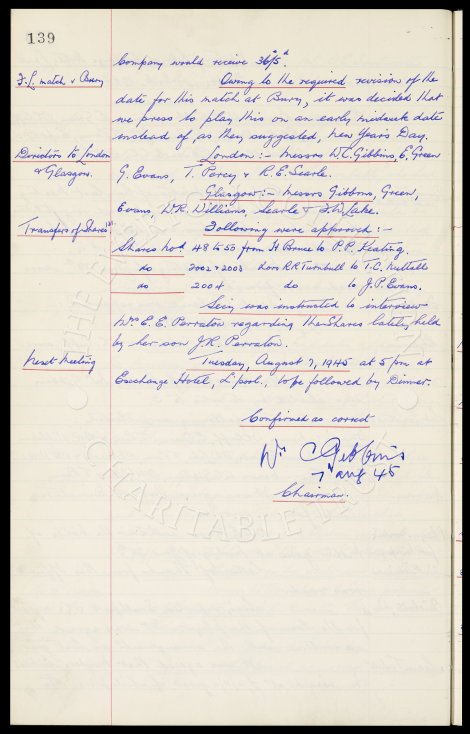 139
Company would receive 36/5d
F.L. match v Bury
Owing to the required revision of the
date for this match at Bury, it was decided that
we press to play this on an early midweek date
instead of, as they suggested, New Year's Day.
Directors to London
& Glasgow.
London :- Messrs W.C. Gibbins, E. Green
G. Evans, T. Percy & R.E. Searle.
Glasgow :- Messrs Gibbins, Green,
Evans, W.R. Williams, Searle & F.W. Lake.
Transfers of Shares
Following were approved :-
Shares Nod 48 to 50 from H Bruce to P.P. Keating.
do 2002 & 2003 RR Turnbull to T.C. Nuttall
do 2004 do to J.P. Evans.
Secy was instructed to interview
Mrs E.E. Perraton regarding the Shares lately held
by her son J.R. Perraton.
Next Meeting
Tuesday, August 7, 1945 at 5 pm at
Exchange Hotel, L'pool., to be followed by Dinner.
Confirmed as correct
Wm C Gibbins
7 Aug 45
Chairman.
CHARITABLE